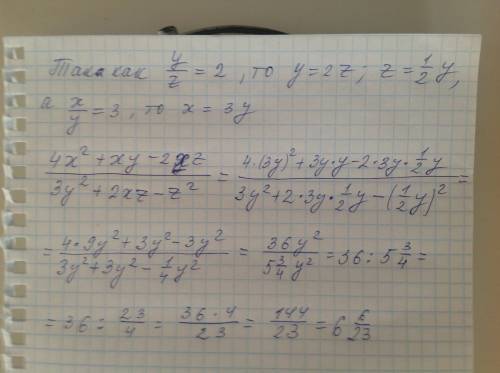 Так как y/z = 2, то y = 2z; z = 1/2 y,
а x/y = 3, то x = 3y
(4x² + xy - 2xz)/(3y² + 2xz - z²) = (4·(3y)² + 3y·y - 2·3y·1/2 y)/(3y² + 2·3y·1/2 y - (1/2 y)²) =
= (4·9y² + 3y² - 3y²)/(3y² + 3y² - 1/4 y²) = 36y²/(5 3/4 y²) = 36 : 5 3/4 =
= 36 : 23/4 = (36·4)/23 = 144/23 = 6 6/23